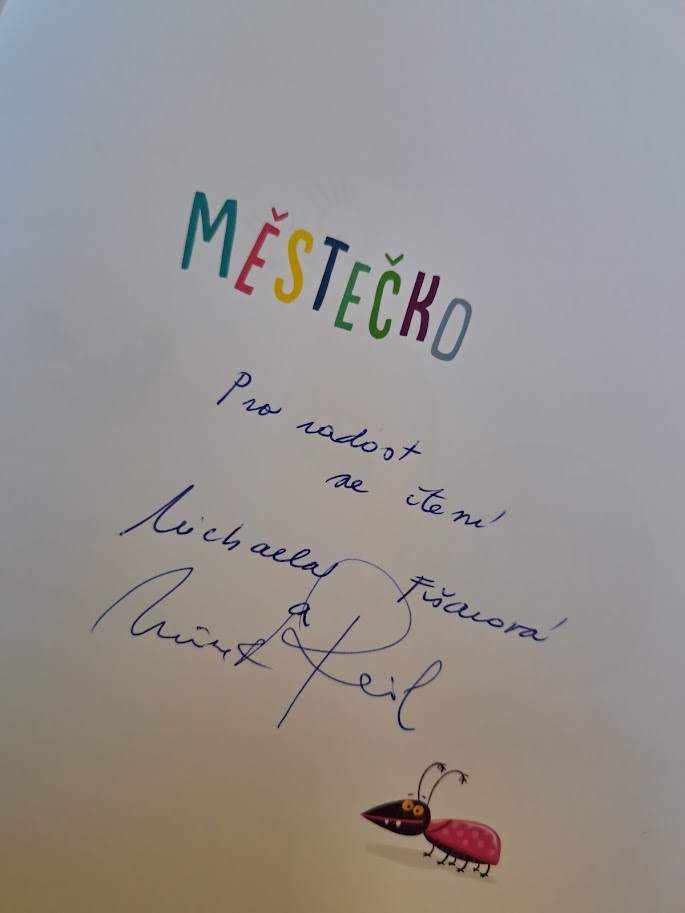 MĚSTEČKO
Pro radost
ze čtení
Michaela Fišarová
a